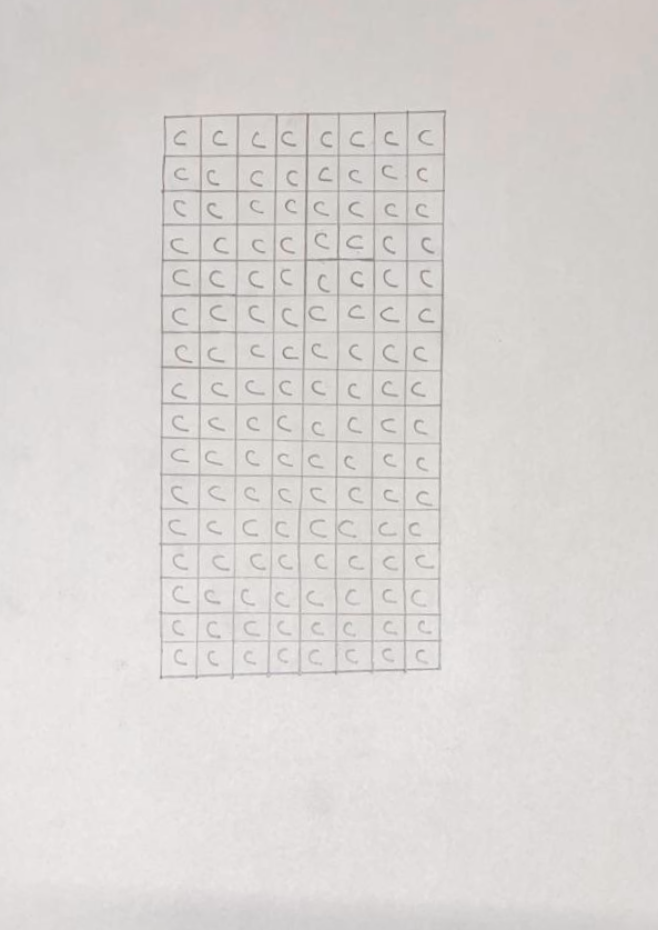 C C C C C C C C
C C C C C C C C
C C C C C C C C
C C C C C C C C
C C C C C C C C
C C C C C C C C
C C C C C C C C
C C C C C C C C
C C C C C C C C
C C C C C C C C
C C C C C C C C
C C C C C C C C
C C C C C C C C
C C C C C C C C
C C C C C C C C
C C C C C C C C